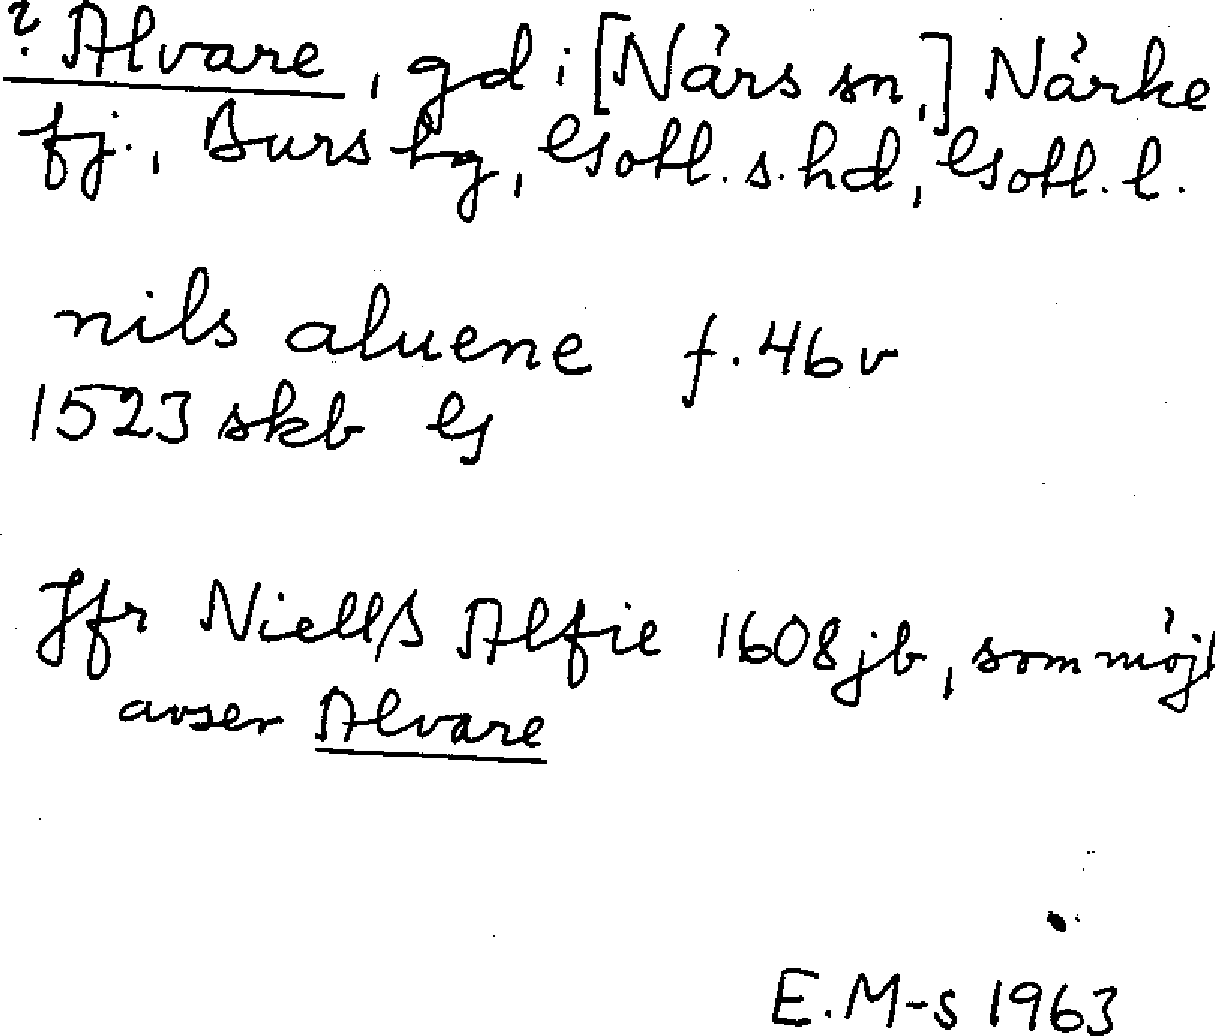 ? Alvare, gd i [Närs sn,] Närke
fj., Burs tg, Gotl. s. hd, Gotl. l.
nils aluene f. 46 v
1523 skb G
Jfr Niellß Alfie 1608 jb, som möjl
avser Alvare
E. M-s 1963